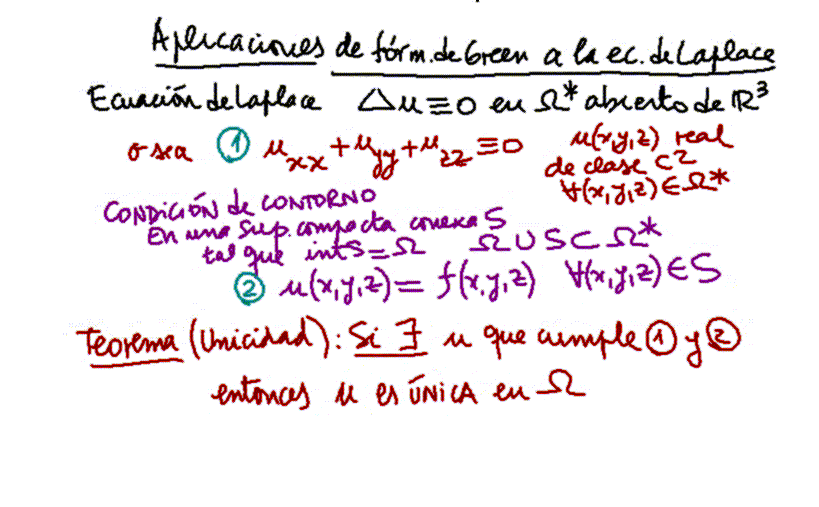 Aplicaciones de fórm. de Green a la ec. de Laplace
Ecuación de Laplace △u≡0 en Ω* abierto de ℝ³
o sea ① u_xx + u_yy + u_zz ≡ 0 u(x,y,z) real
de clase C²
∀(x,y,z)∈Ω*
CONDICIÓN de CONTORNO
En una sup. compacta conexa S
tal que int S = Ω Ω∪S⊂Ω*
② u(x,y,z) = f(x,y,z) ∀(x,y,z)∈S
Teorema (Unicidad): Si ∃ u que cumple ① y ②
entonces u es ÚNICA en Ω